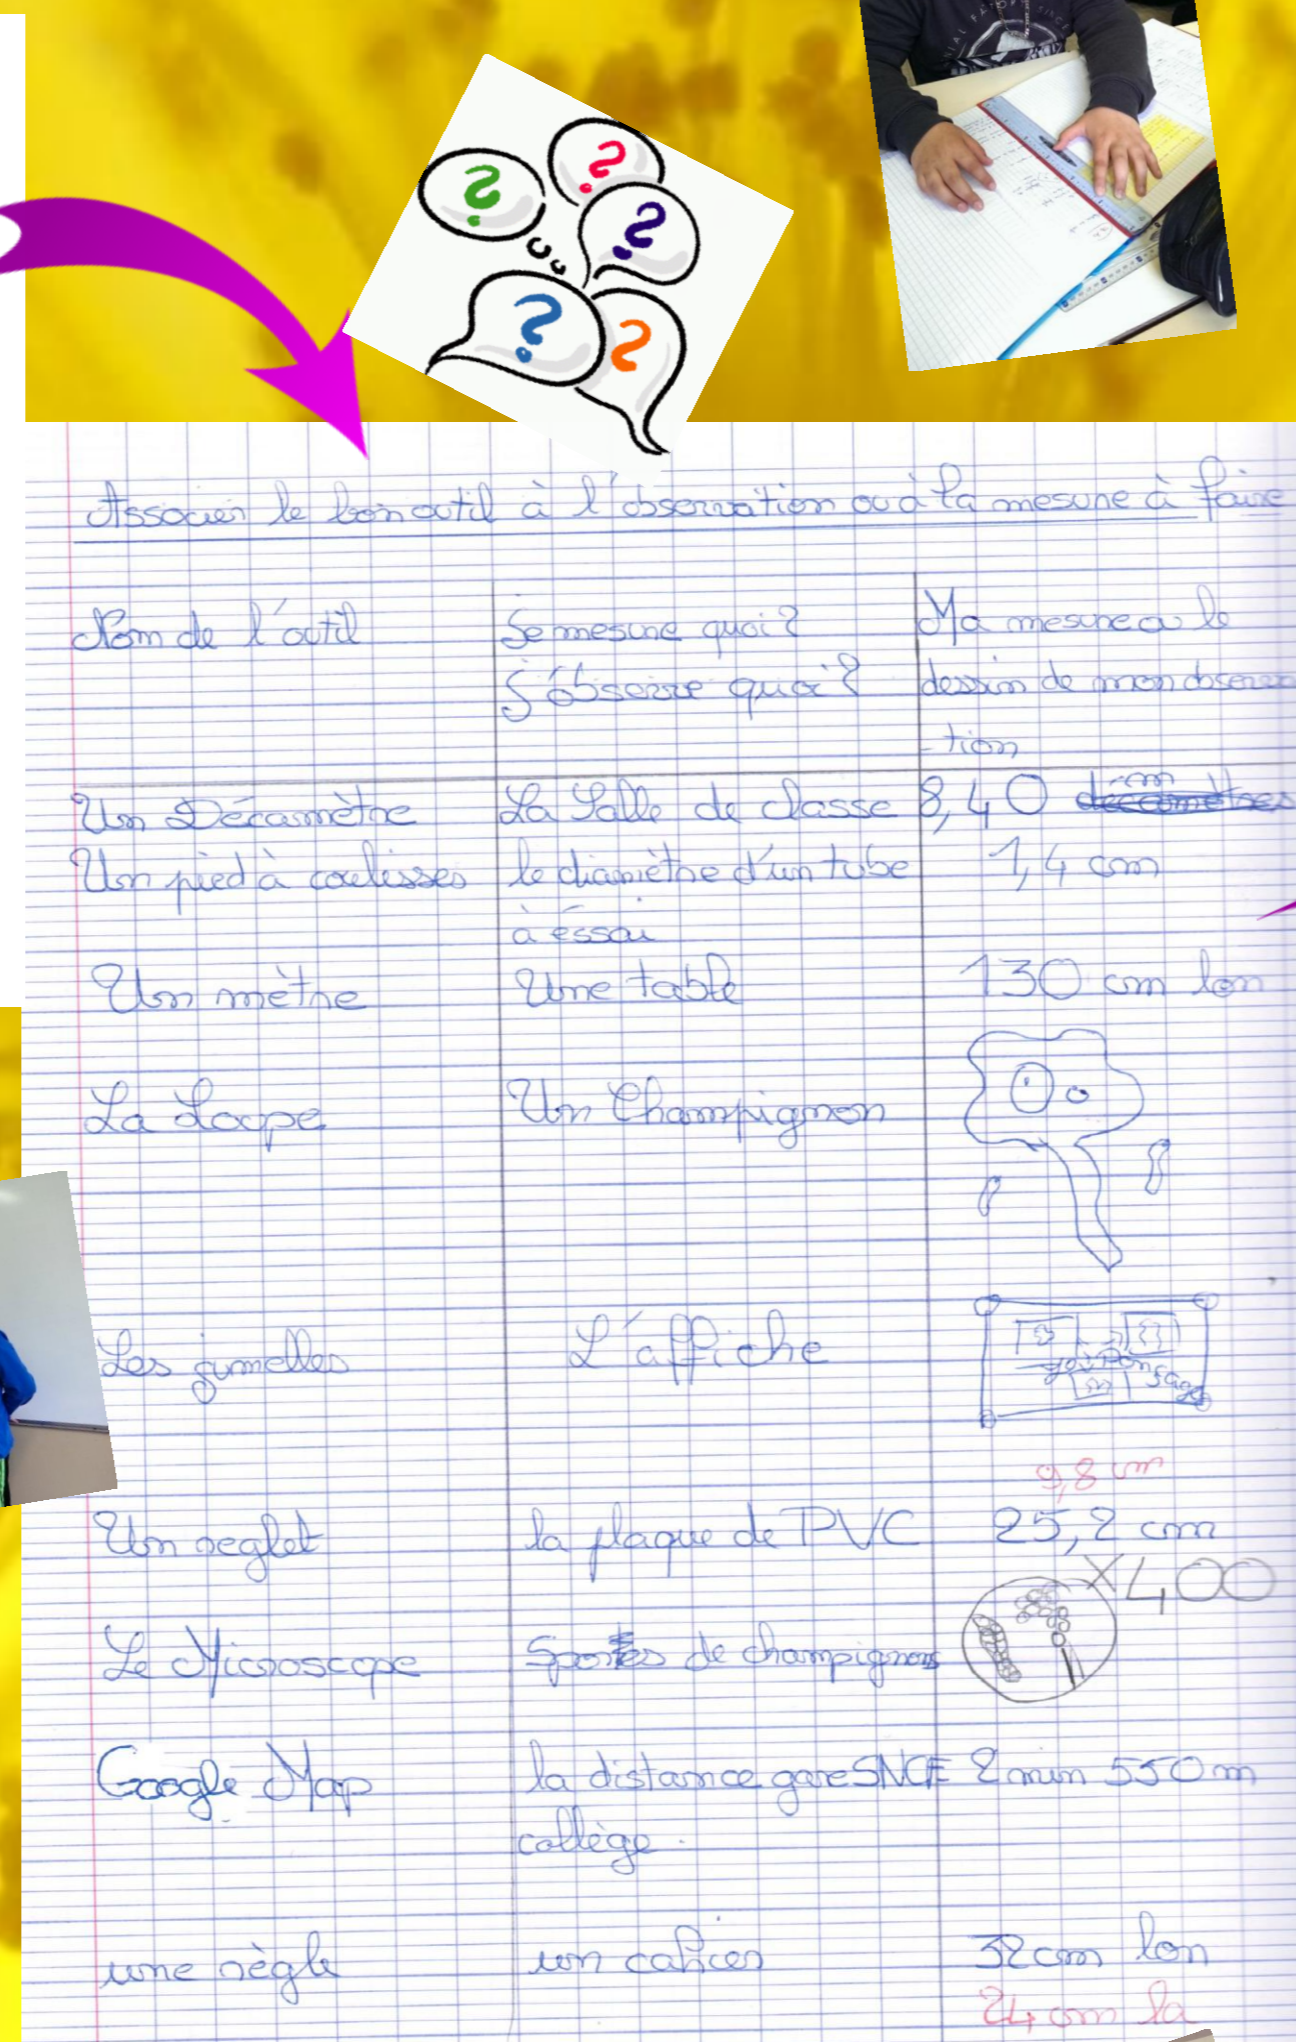 Associer le bon outil à l'observation ou à la mesure à faire
Nom de l'outil
Je mesure quoi?
J'observe quoi?
Ma mesure ou le
dessin de mon observa
-tion
Un Décamètre
La Salle de classe
8,40 m
Un pied à coulisses
le diamètre d'un tube
à éssai
1,4 cm
Un mètre
Une table
130 cm lon
La Loupe
Un Champignon
Les jumelles
L'affiche
9,8 cm
Un reglet
la plaque de PVC
25,2 cm
X400
Le Microscope
Spores de champignons
Google Map
la distance gare SNCF
collège.
2 min 550 m
une règle
un cahier
32 cm lon
24 cm la